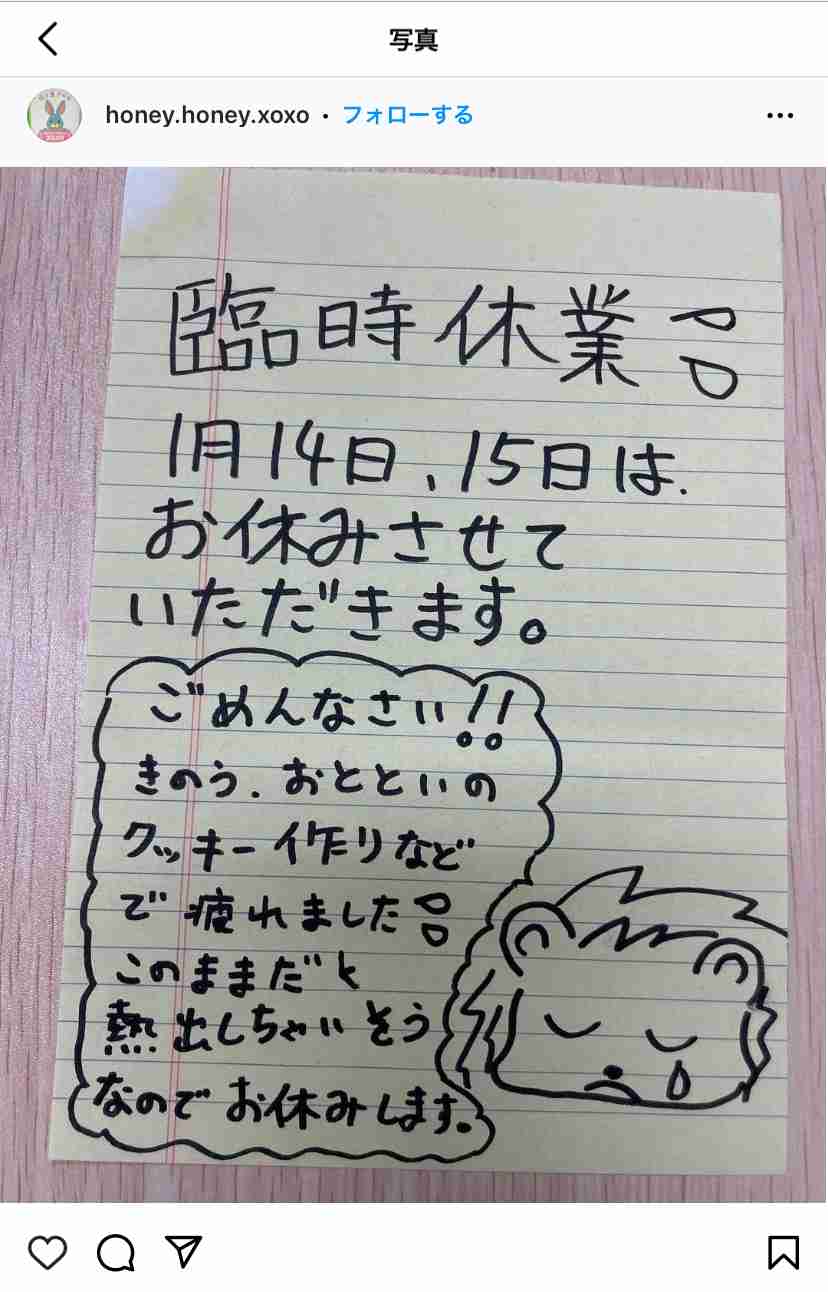 写真
honey.honey.xoxo • フォローする
臨時休業
1月14日、15日は、
お休みさせて
いただきます。
ごめんなさい!!
きのう、おとといの
クッキー作りなど
で疲れました
このままだと
熱出しちゃいそう
なのでお休みします。